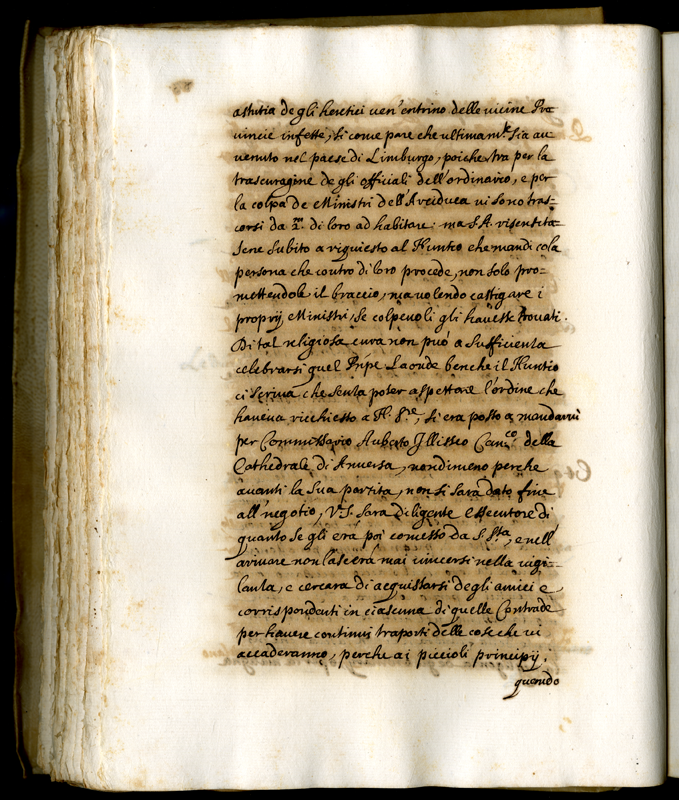 astutia degli heretici ven'entrino delle vicine Pro
vincie infette, si come pare che ultimam.te sia au
venuto nel paese di Limburgo, poiche tra per la
trascuragine degli officiali dell'ordinario, e per
la colpa de Ministri dell'Arciduca vi sono tras-
corsi da di loro ad habitare: ma S.A. risentita-
sene subito a riquiesto al Nuntio che mandi cola
persona che contro di loro procede, non solo pro-
mettendole il braccio, ma volendo castigare i
proprij Ministri, se colpevoli gli havesse trovati.
Di tal religiosa cura non può a sufficienza
celebrarsi quel Prīpe Laonde benche il Nuntio
ci scriva che senza poter aspettare l'ordine che
haveva ricchiesto a N. S.re, si era posto a mandarvi
per Commissario Auberto Can.co della
Cathedrale di Anversa, nondimeno perche
avanti la sua partita, non si sarà dato fine
all'negotio, V.S. sarà diligente essecutore di
quanto se gli era poi comesso da S. S.ta, e nell'
arrivare non lascerà mai vincersi nella vigi-
lanza, e cercara di acquistarsi degli amici e
corrispondenti in ciascuna di quelle Contrade
per havere continui traporti delle cose che vi
accaderanno, perche ai piccioli principij,
quando